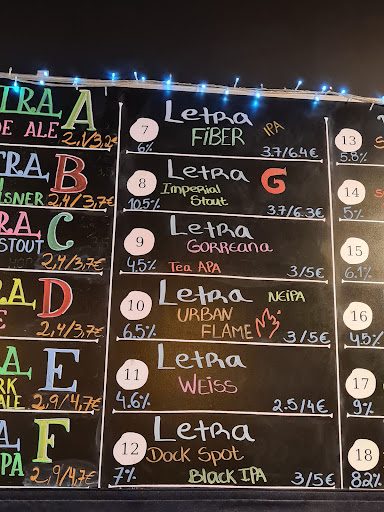 TRA A
DE ALE 2,1/3,2€
TRA B
LSNER 2,4/3,7€
RA C
STOUT
2,4/3,7€
RA D
E 2,4/3,7€
A E
RK
ALE 2,9/4,7€
A F
PA 2,9/4,7€
7 Letra
FiBER IPA
6% 3.7/6.4€
8 Letra G
Imperial
Stout
10.5% 3.7/6.3€
9 Letra
GORREANA
4.5% Tea APA 3/5€
10 Letra NEiPA
URBAN
6.5% FLAME 3/5€
11 Letra
WEISS
4.6% 2.5/4€
12 Letra
Dock Spot
7% Black IPA 3/5€
13
5.8%
14
5%
15
6.1%
16
4.5%
17
9%
18
8.2%